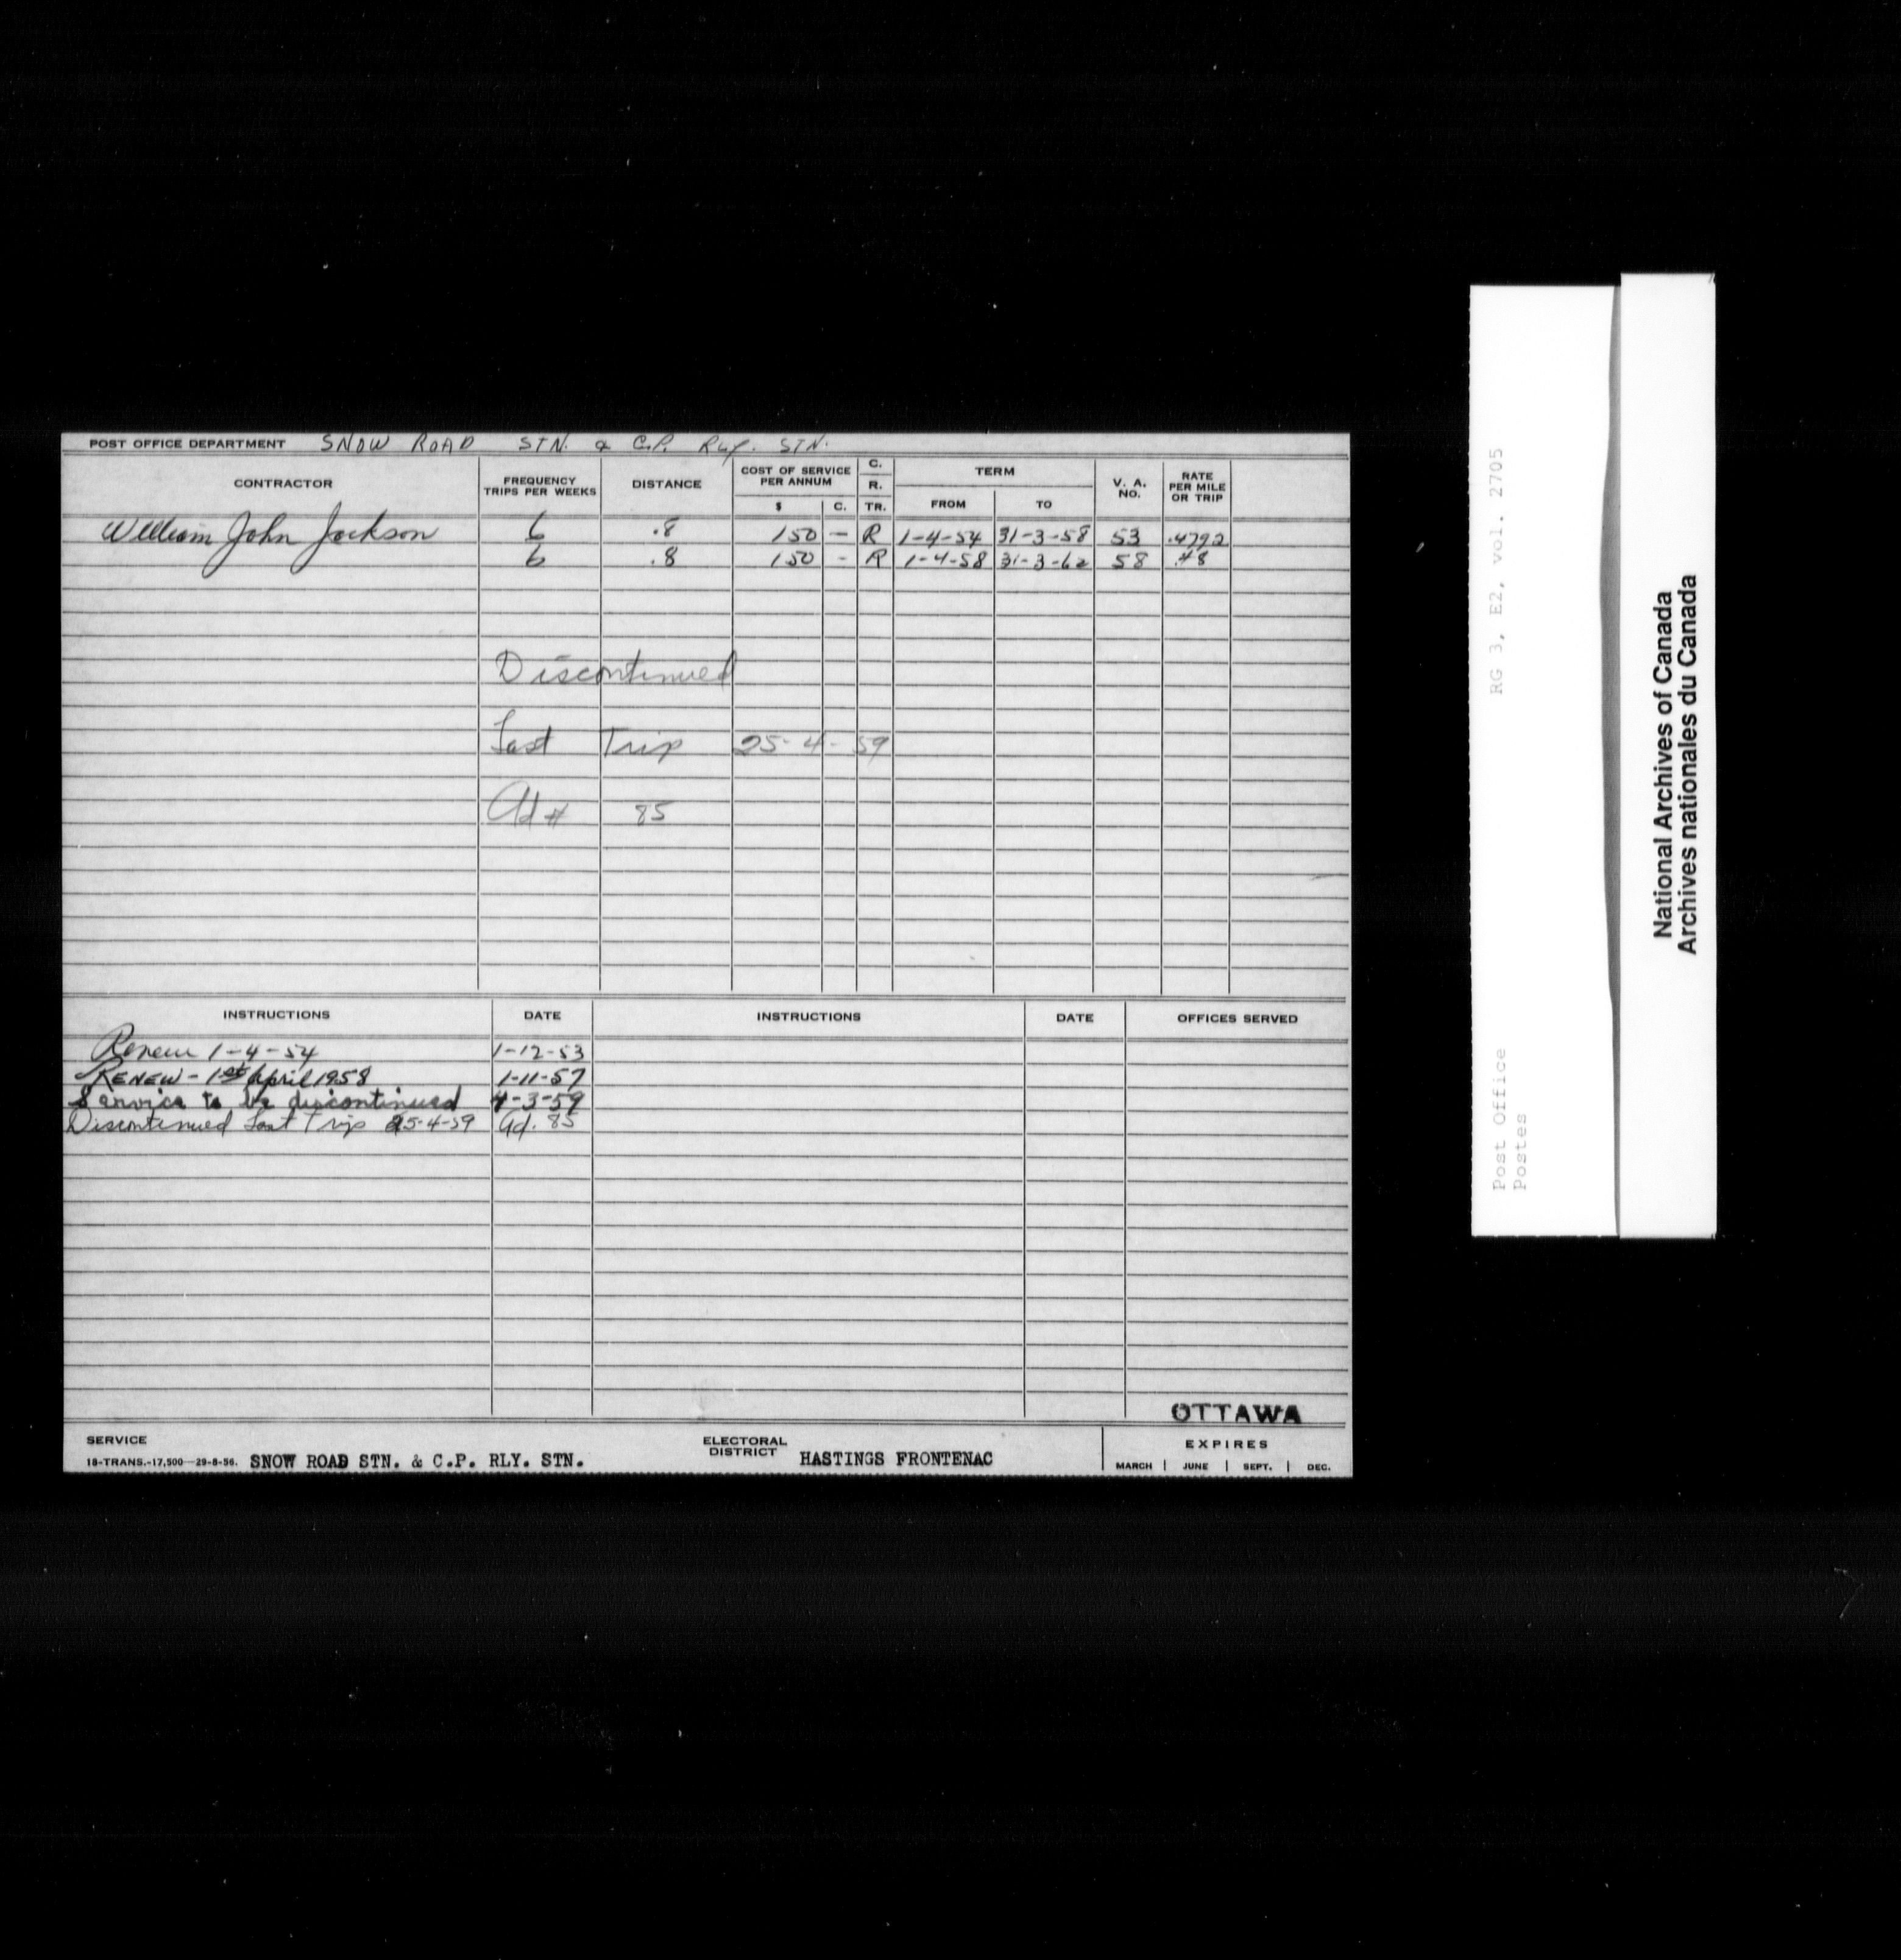 POST OFFICE DEPARTMENT SNOW ROAD STN. & C.P. RLY. STN.
CONTRACTOR FREQUENCY TRIPS PER WEEKS DISTANCE COST OF SERVICE PER ANNUM $ C. C. R. TR. TERM FROM TO V. A. NO. RATE PER MILE OR TRIP
William John Jackson 6 .8 150 — R 1-4-54 31-3-58 53 .4792
6 .8 150 - R 1-4-58 31-3-62 58 .48
Discontinued
Last Trip 25-4-59
Ad # 85
INSTRUCTIONS DATE INSTRUCTIONS DATE OFFICES SERVED
Renew 1-4-54 1-12-53
RENEW - 1st April 1958 1-11-57
Service to be discontinued 4-3-59
Discontinued Last Trip 25-4-59 Ad. 85
OTTAWA
SERVICE
18-TRANS.-17,500—29-8-56. SNOW ROAD STN. & C.P. RLY. STN.
ELECTORAL DISTRICT HASTINGS FRONTENAC
EXPIRES
MARCH | JUNE | SEPT. | DEC.
RG 3, E2, vol. 2705
Post Office
Postes
National Archives of Canada
Archives nationales du Canada